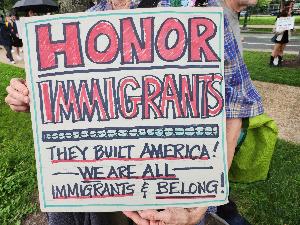 HONOR
IMMIGRANTS
THEY BUILT AMERICA!
WE ARE ALL
IMMIGRANTS & BELONG!